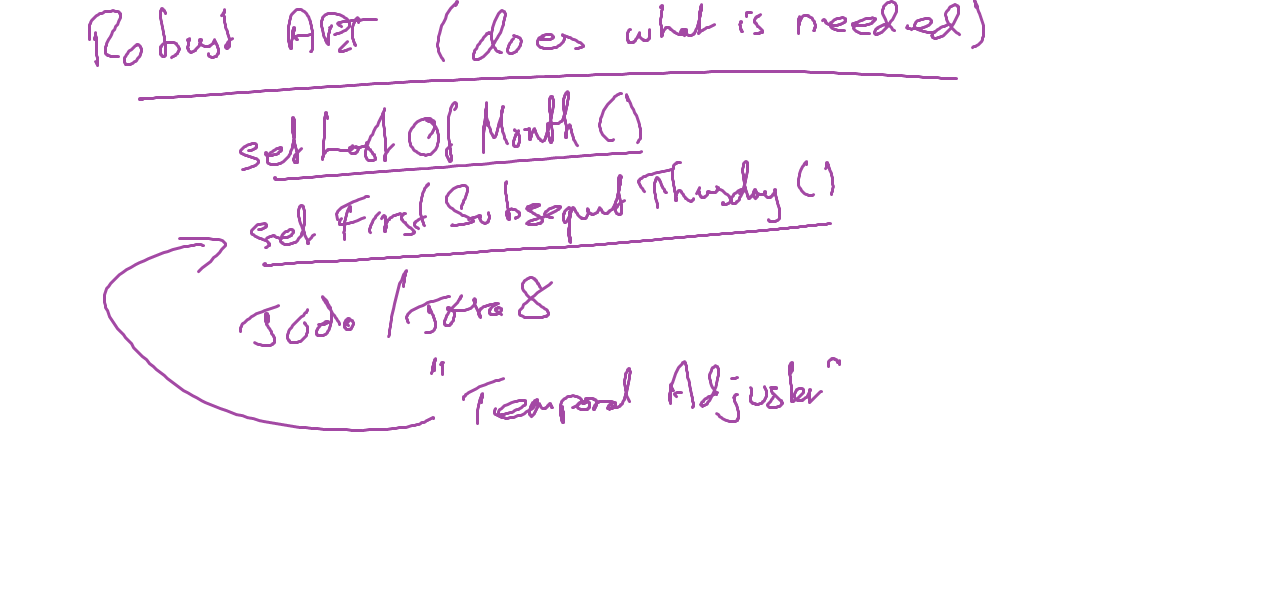 Robust API (does what is needed)
set Last Of Month ()
set First Subsequent Thursday ()
Joda / Java 8
"Temporal Adjuster"